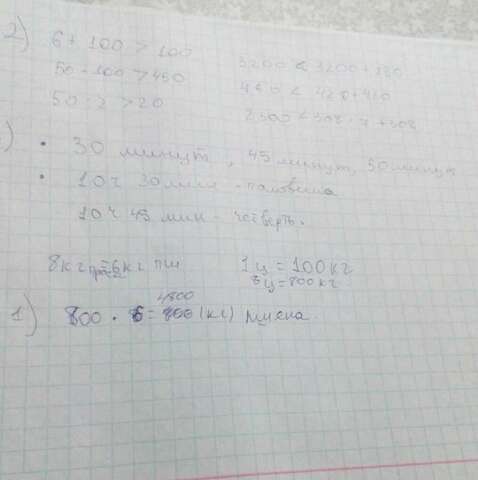 2)
6 + 100 > 100
50 · 100 > 450
50 · 2 > 20
3200 < 3200 +
450 < 420+420
2500 < 508 · 7 + 508
)
• 30 минут, 45 минут, 50 минут
• 10ч 30мин - половина
10ч 45 мин - четверть.
8кг 6кг пш
1ц = 100кг
8ц = 800кг
1) 800 · 6 = 4800 (кг)